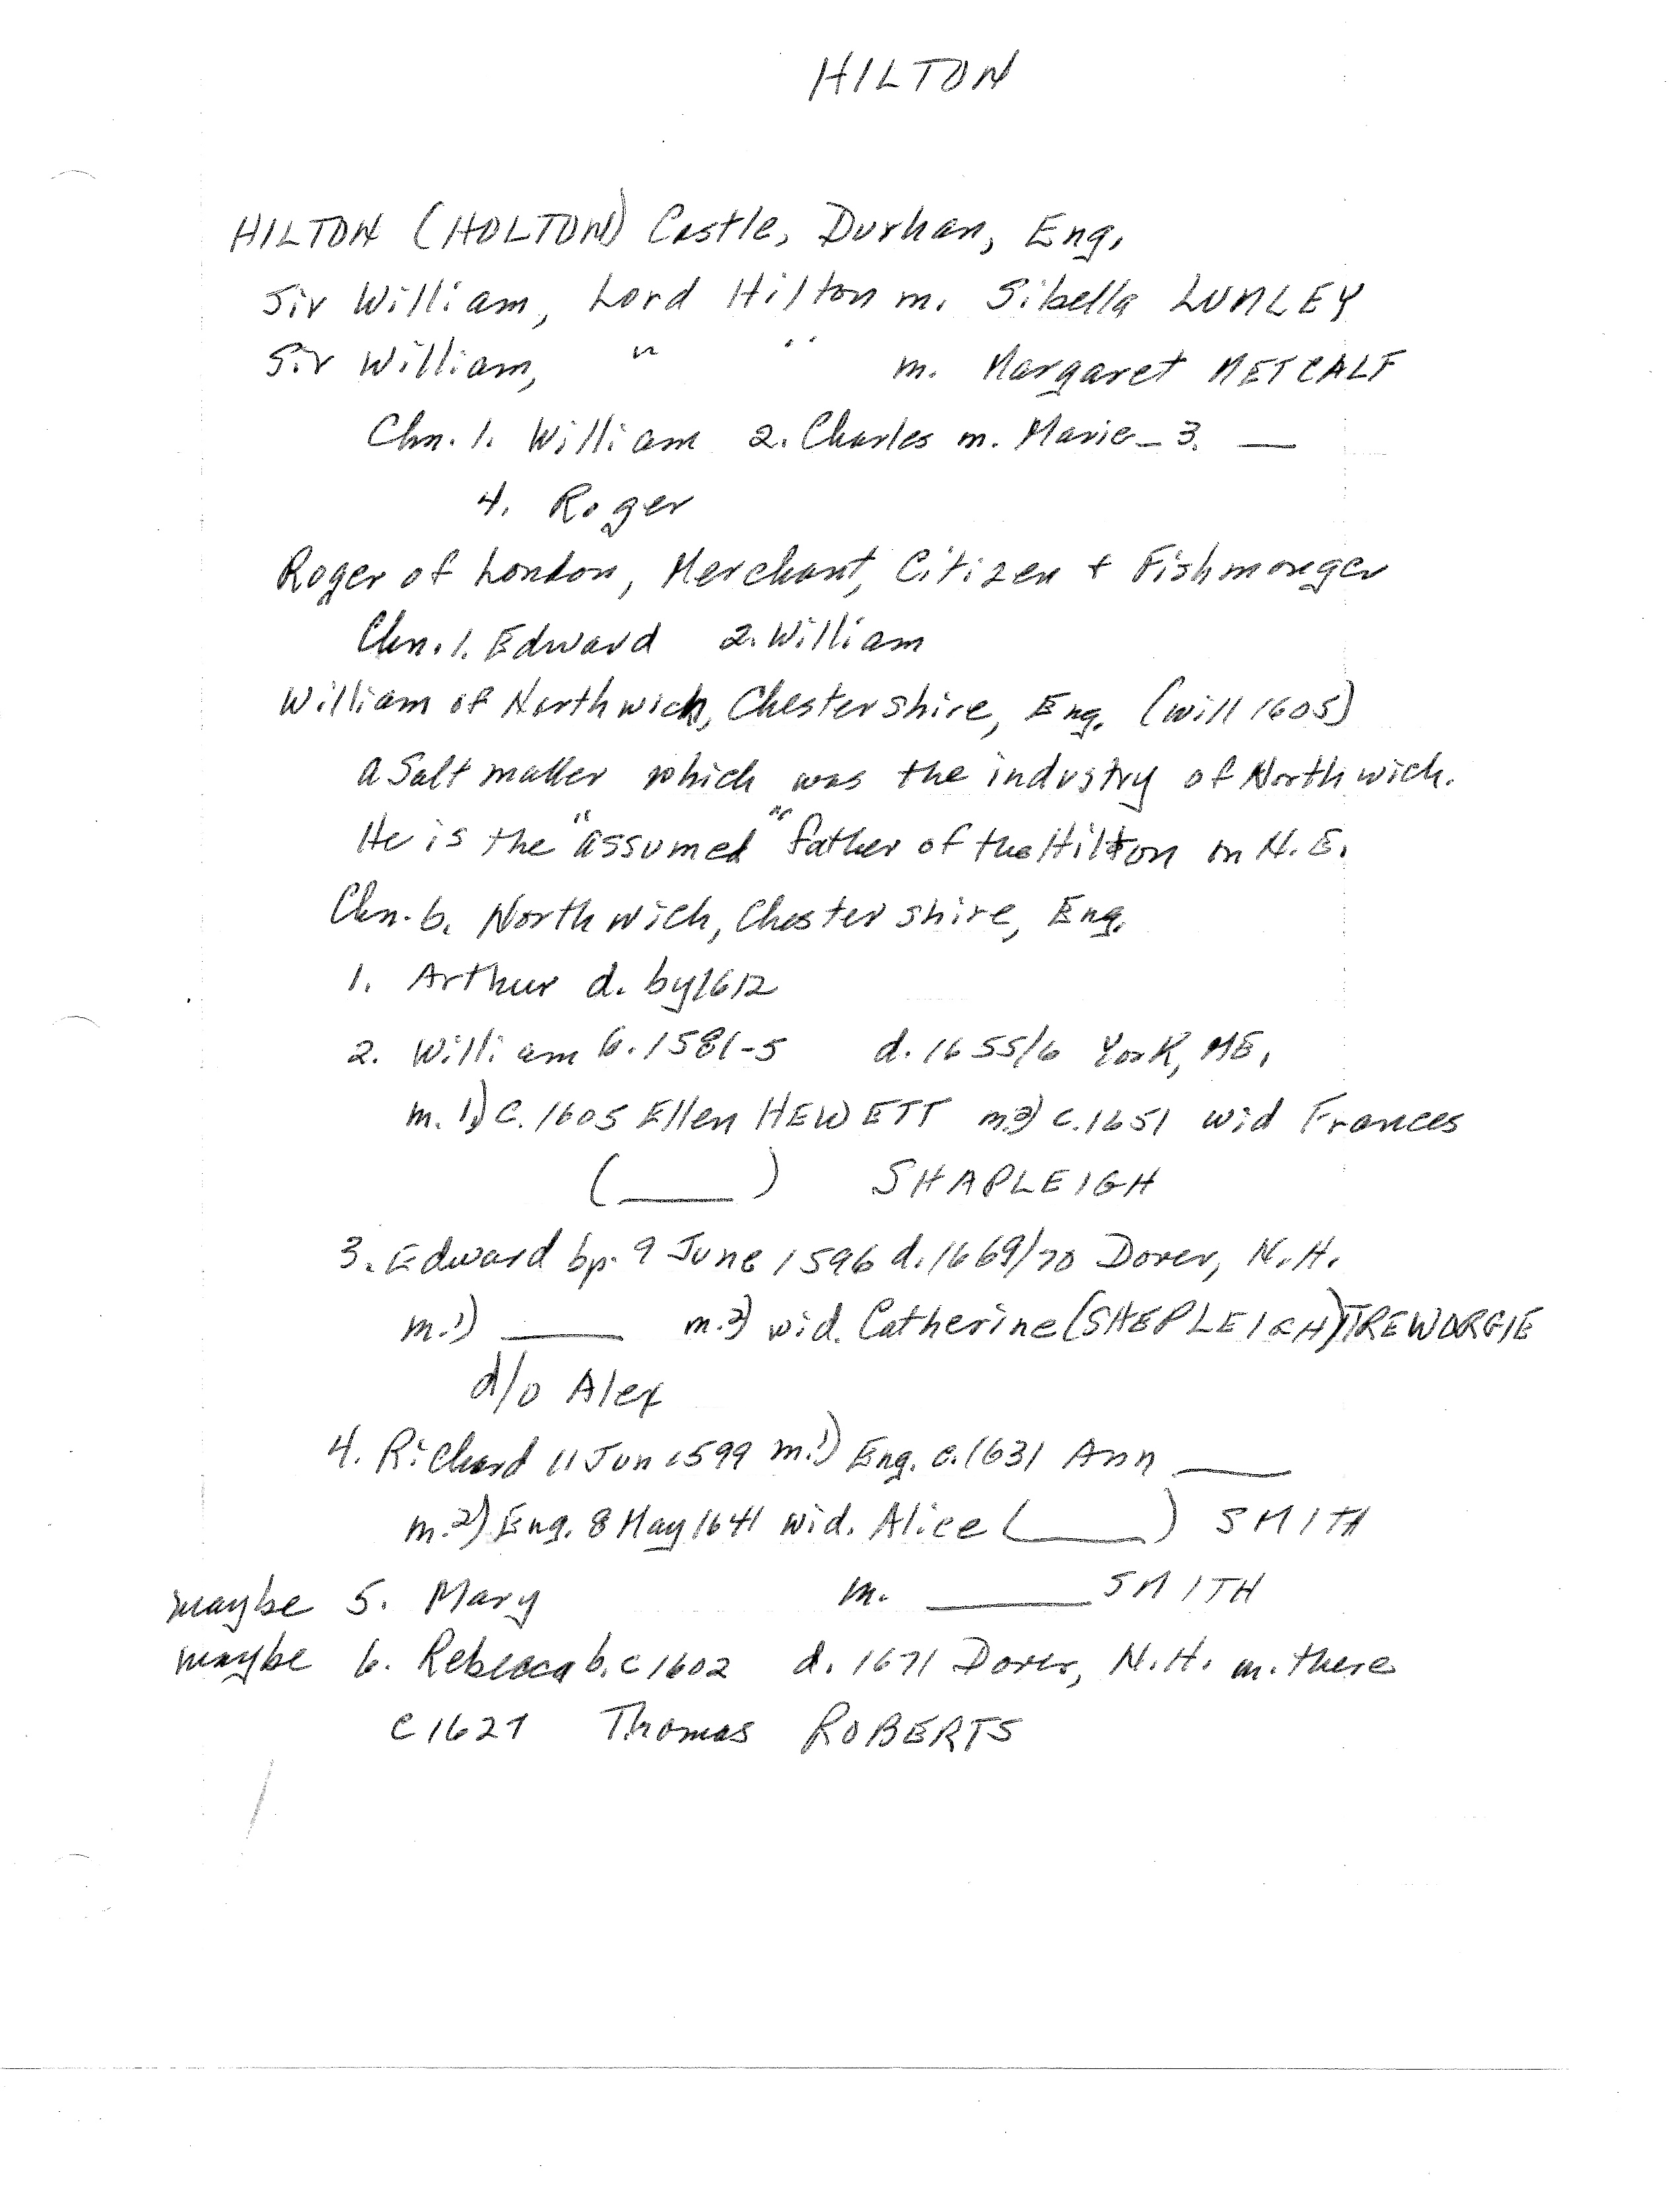 HILTON
HILTON (HOLTON) Castle, Durhan, Eng.
Sir William, Lord Hilton m. Sibella LUMLEY
Sir William, " " m. Margaret METCALF
Chn. 1. William 2. Charles m. Marie _ 3. __
4. Roger
Roger of London, Merchant, Citizen + Fishmonger
Chn. 1. Edward 2. William
William of Northwich, Chestershire, Eng. (will 1605)
a Salt maker which was the industry of Northwich.
He is the "assumed" father of the Hilton in N.E.
Chn. b. Northwich, Chestershire, Eng.
1. Arthur d. by 1612
2. William b. 1581-5 d. 1655/6 York, ME.
m. 1) c. 1605 Ellen HEWETT m. 2) c. 1651 wid Frances
(____) SHAPLEIGH
3. Edward bp. 9 June 1596 d. 1669/70 Dover, N.H.
m. 1) ____ m. 2) wid. Catherine (SHEPLEIGH) TREWORGIE
d/o Alex
4. Richard 11 Jun 1599 m. 1) Eng. c. 1631 Ann ____
m. 2) Eng. 8 May 1641 wid. Alice (____) SMITH
maybe 5. Mary m. ____ SMITH
maybe 6. Rebecca b. c 1602 d. 1671 Dover, N.H. m. there
c 1627 Thomas ROBERTS